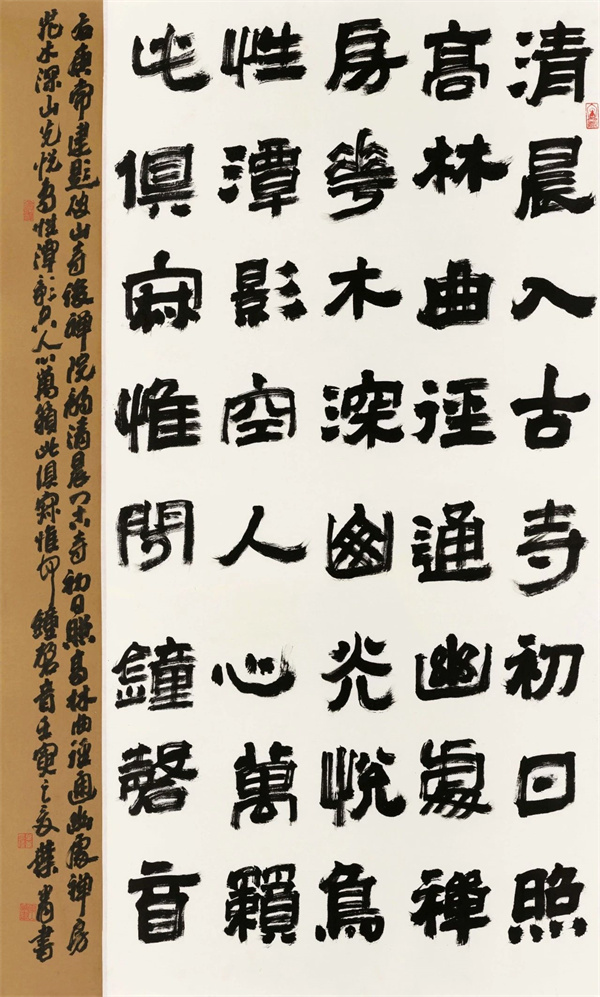 清晨入古寺初日照
高林曲徑通幽處禪
房華木深山光悦鳥
性潭影空人心萬籟
此俱寂惟聞鐘磬音
右唐常建題破山寺後禪院清晨入古寺初日照高林曲徑通幽處禪房
花木深山光悦鳥性潭影空人心萬籟此俱寂惟聞鐘磬音壬寅之夏葉書